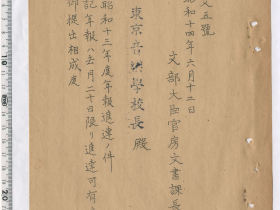 文五號
昭和十四年六月十三日
文部大臣官房文書課長
東京音樂學校長殿
昭和十三年度年報進達ノ件
記年報ハ五月二十日限リ進達可有
御提出相成度